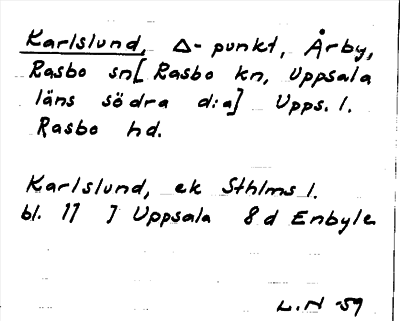 Karlslund, Δ-punkt, Årby,
Rasbo sn[Rasbo kn, Uppsala
läns södra d:a] Upps. l.
Rasbo hd.
Karlslund, ek Sthlms l.
bl. 11 I Uppsala 8d Enbyle
L.N -59